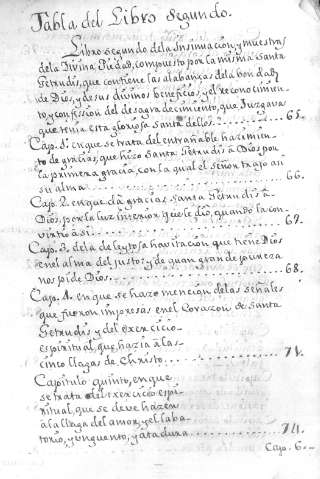 Tabla del Libro Segundo.
Libro segundo dela Insinuacion, y muestras
dela Divina Piedad, compuesto por la misma Santa
Getrudis, que contiene las alabanças dela bondad
de Dios, y de sus divinos beneficios, y el reconocimien
to, y confession del desagradecimiento, que Juzgava
que tenia esta gloriosa Santa dellos. 65.
Cap. 1. en que se trata del entrañable hacimien-
to de gracias, que hizo Santa Getrudis à Dios por
la primera gracia, con la qual el Señor trajo asi
su alma 66.
Cap. 2. en que dà gracias Santa Getrudis à
Dios, por la luz interior que le dio, quando la con
virtio à si 67.
Cap. 3. de la deleytosa havitacion que tiene Dios
en el alma del justo, y de quan grande pureza
nos pide Dios 68.
Cap. 4. en que se haze mencion delas señales
que fueron impresas en el Corazon de Santa
Getrudis y del exercicio
espiritual, que hazia à las
cinco llagas de Christo 71.
Capitulo quinto, en que
se trata del exercicio espi-
ritual, que se deve hazer
à la llaga del amor, y el laba-
torio, y unguento, y atadura 74.
Cap. 6.